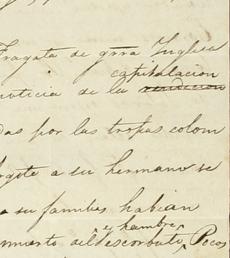 Fragata de grra Inglesa
capitulacion
noticia de la rendicion
das por las tropas colom
a su hermano se
a su familia, habian
e hambre
muerto del escorbuto, Pocos